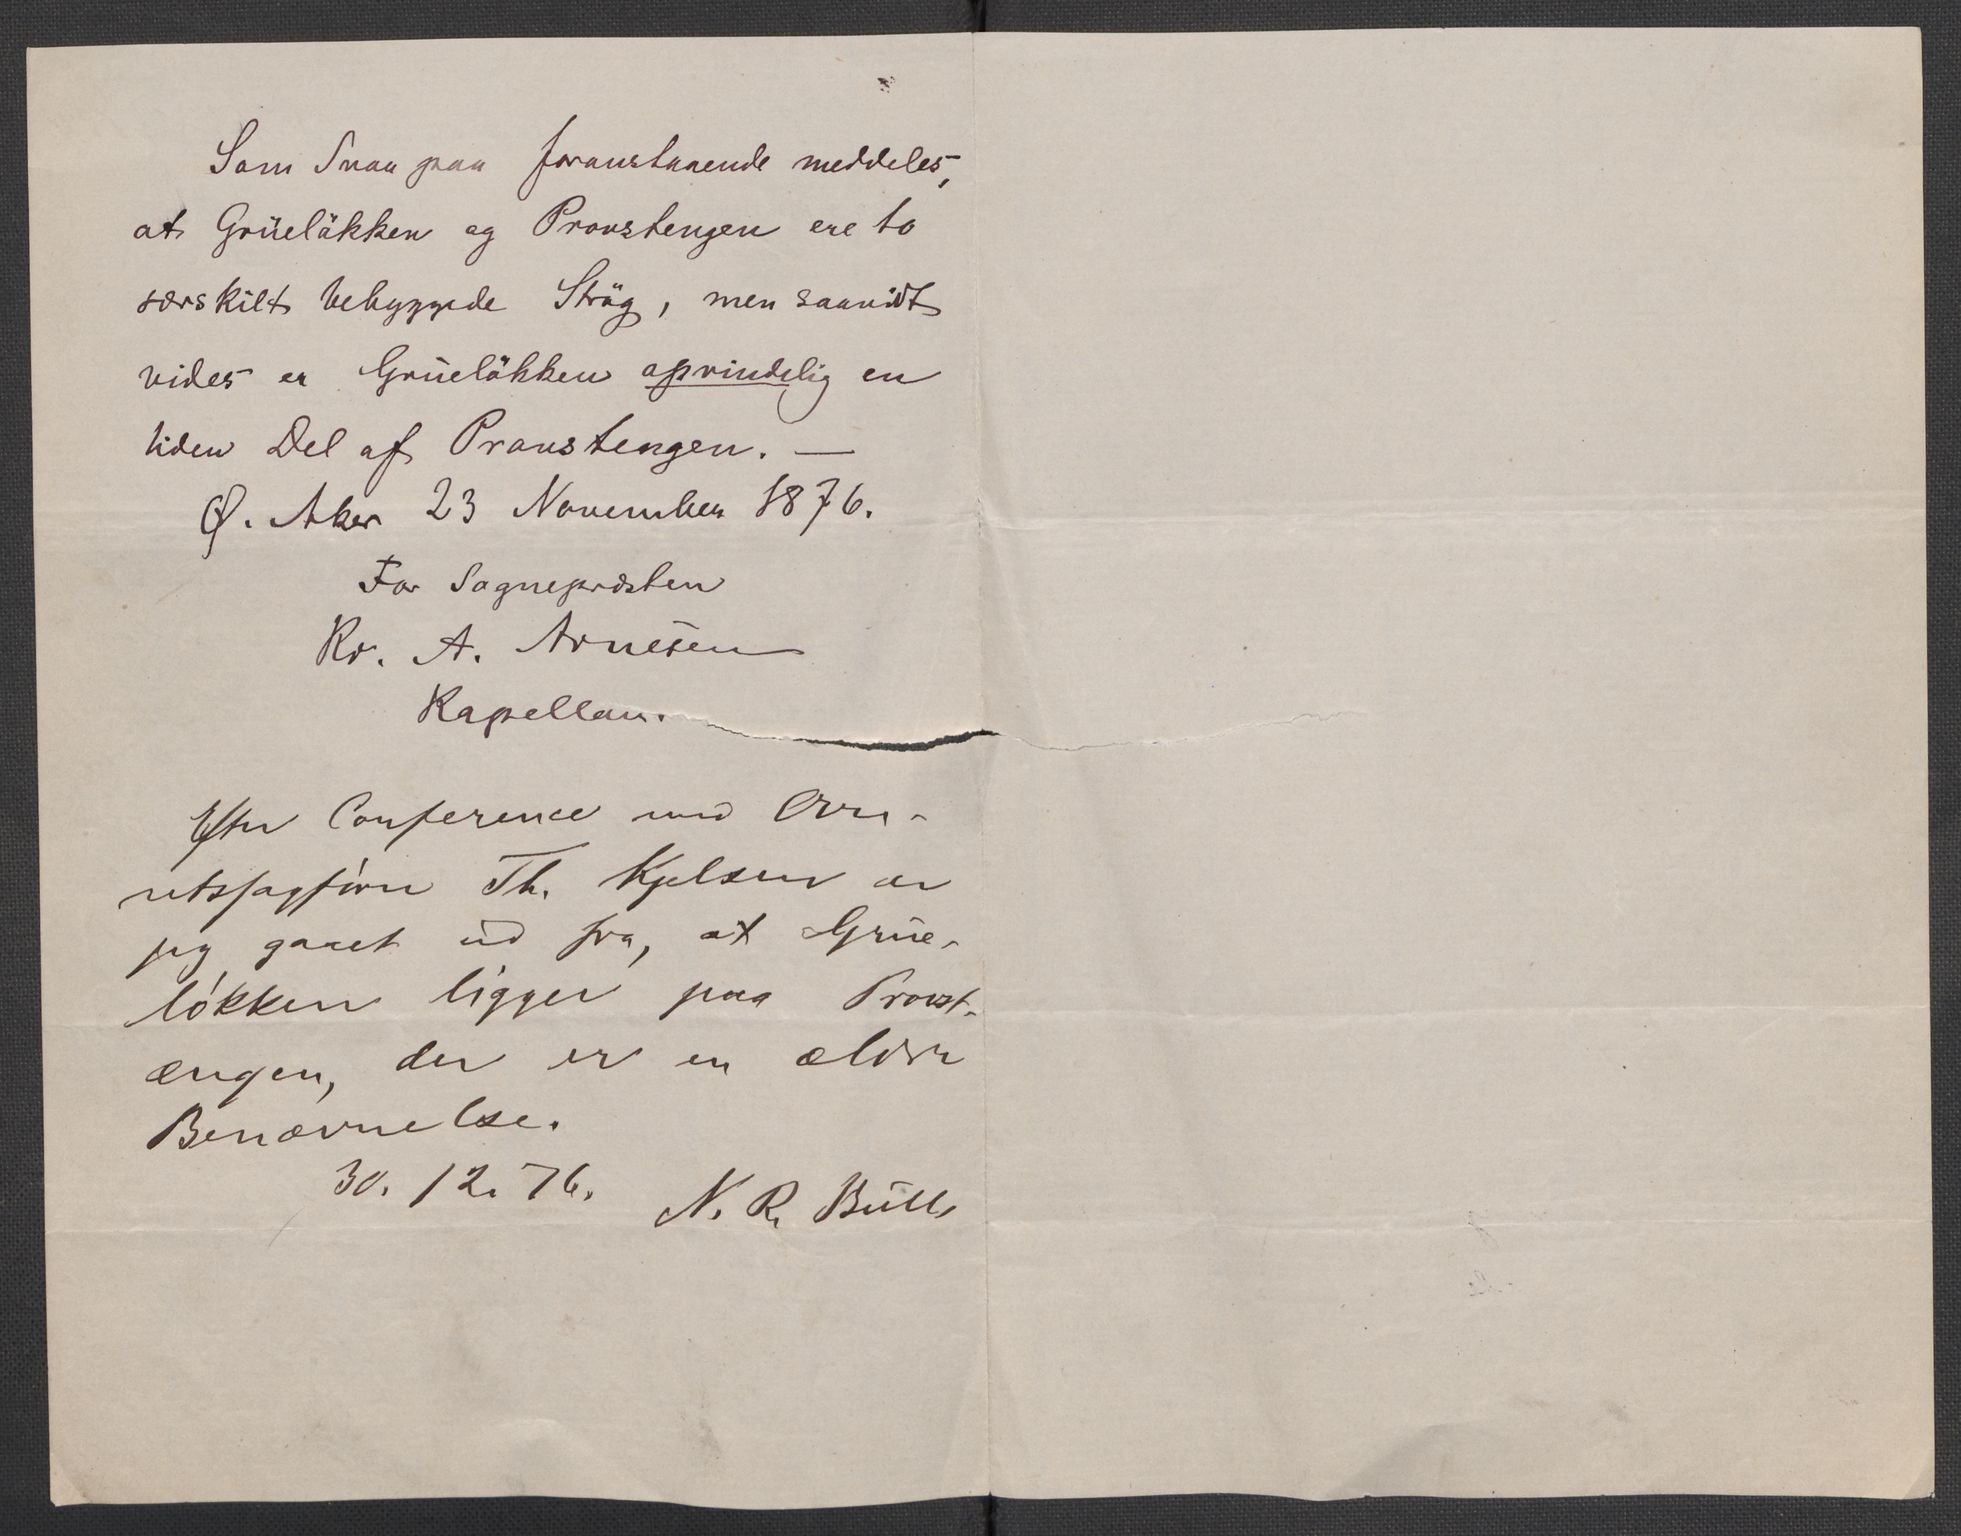 Som Svar paa foranstaaende meddeles,
at Grüeläkken og Provstengen ere to
særskilt bebyggede Sträg, men saavidt
vides er Grüeläkken oprindelig en
liden Del af Provstengen. —
Ø. Aker 23 November 1876.
For Sognepræsten
Kr. A. Arnesen
Kapellan.
Efter Conference med Over-
retssagfører Th. Kjelsen er
jeg gaaet ud fra, at Grüe-
løkken ligger paa Provst-
ængen, der er en ældre
Benævnelse.
30. 12. 76. N. R. Bull.